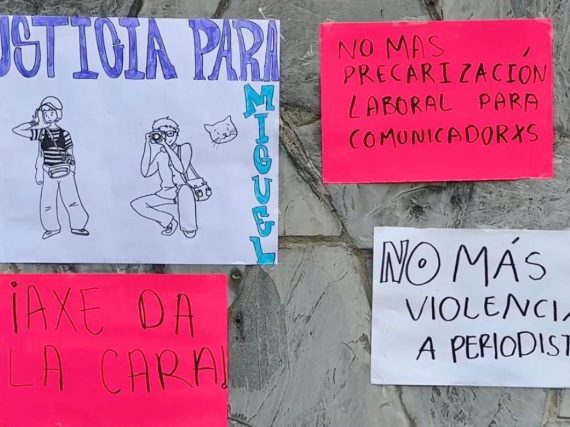 USTICIA PARA
MIGUEL
NO MAS
PRECARIZACIÓN
LABORAL PARA
COMUNICADORXS
¡AXE DA
LA CARA!
NO MÁS
VIOLENCIA
A PERIODIST